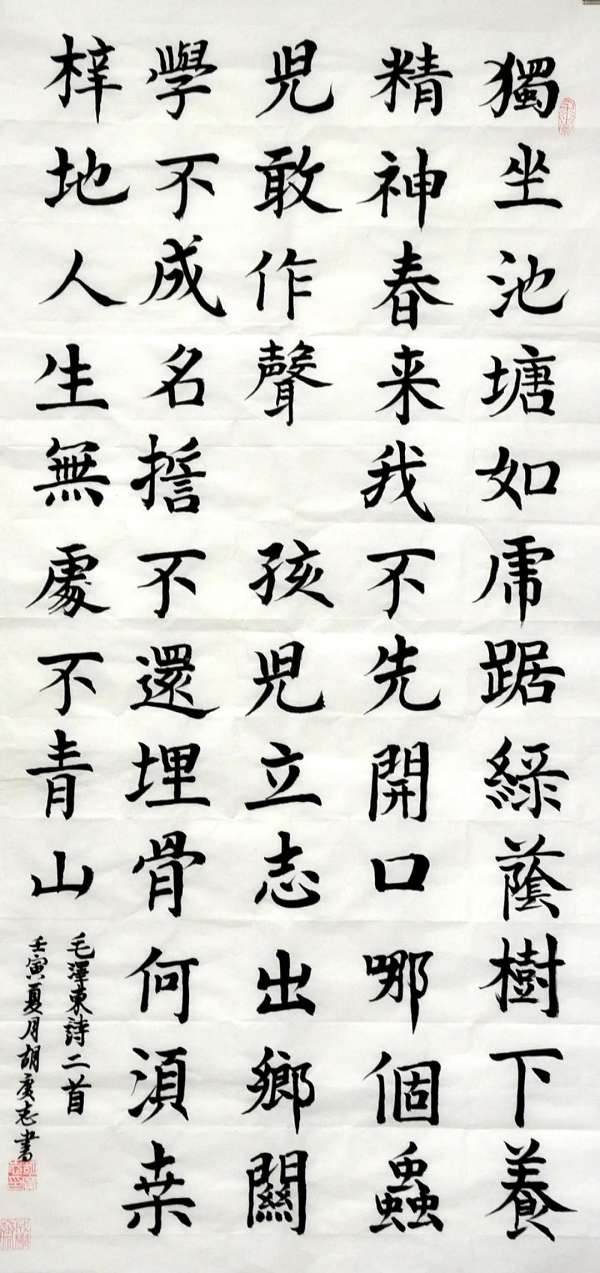 獨坐池塘如虎踞綠蔭樹下養
精神春来我不先開口哪個蟲
児敢作聲 孩児立志出鄉關
學不成名誓不還埋骨何湏桒
梓地人生無處不青山
毛澤東詩二首
壬寅夏月胡志書